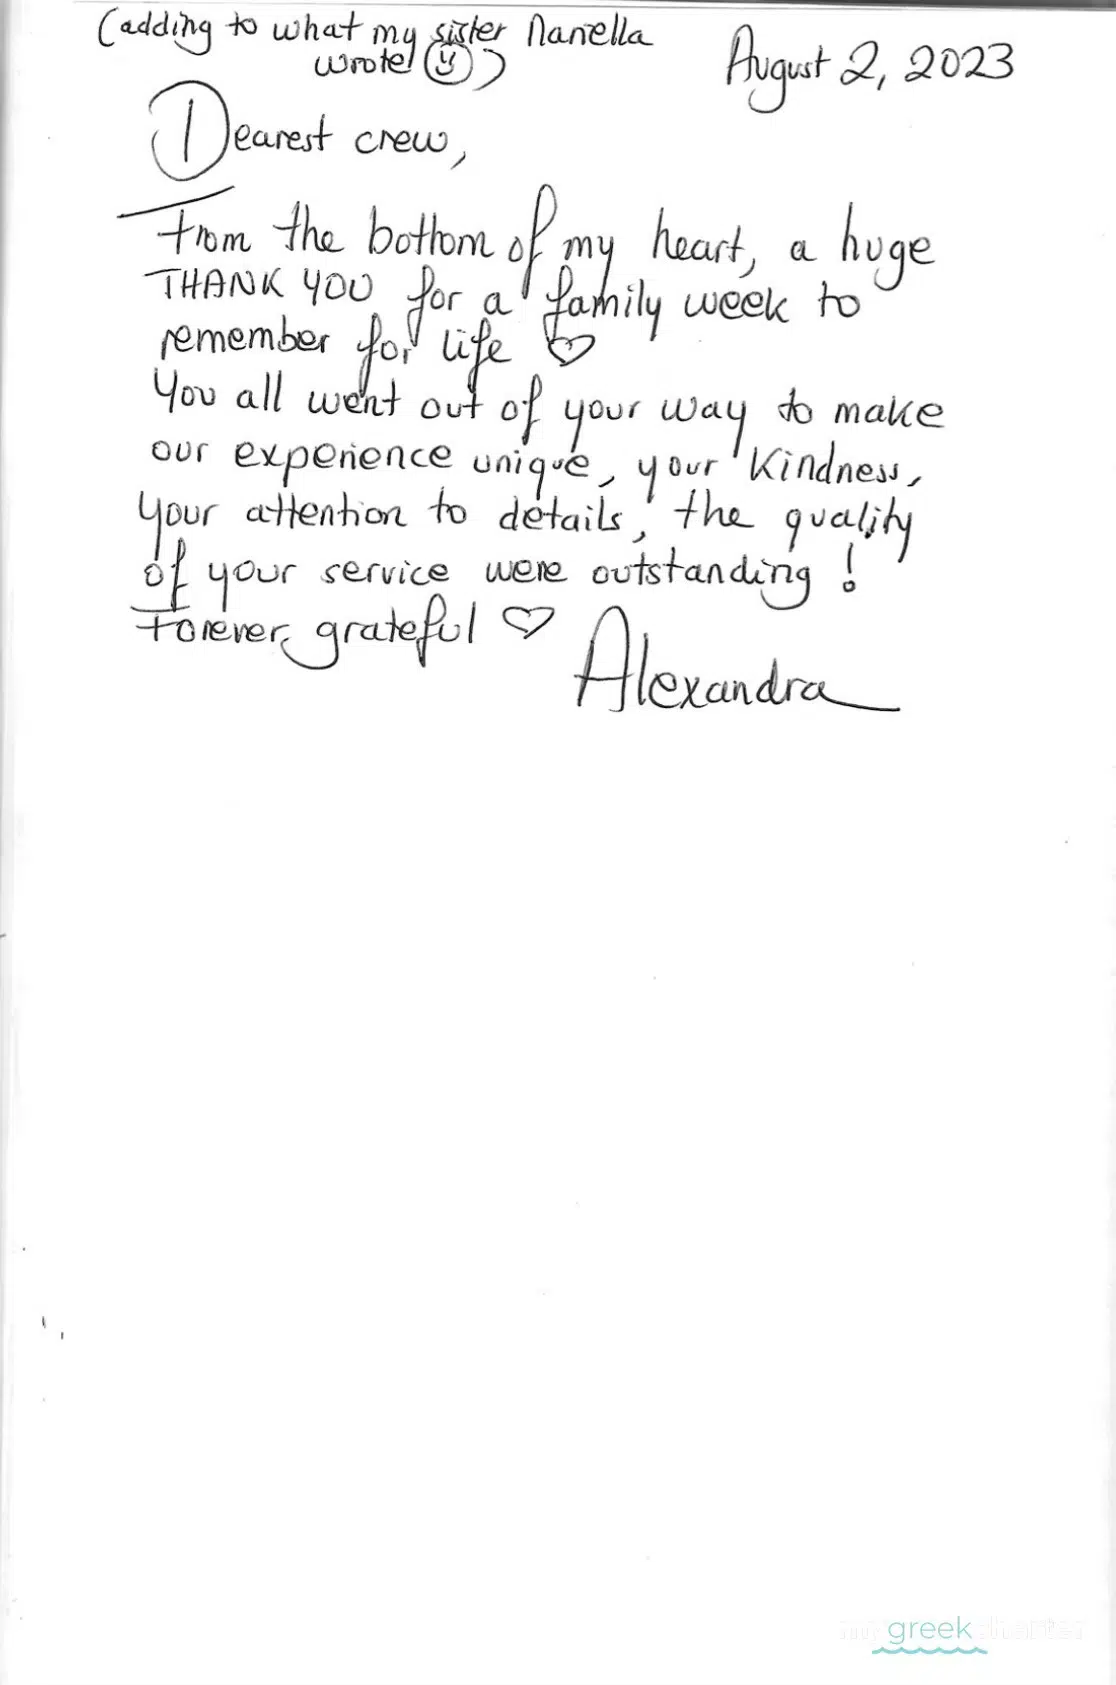 (adding to what my sister Nanella
wrote! ☺)
August 2, 2023
Dearest crew,
From the bottom of my heart, a huge
THANK YOU for a family week to
remember for life ♡
You all went out of your way to make
our experience unique, your Kindness,
your attention to details, the quality
of your service were outstanding!
Forever grateful ♡
Alexandra
my greek charter